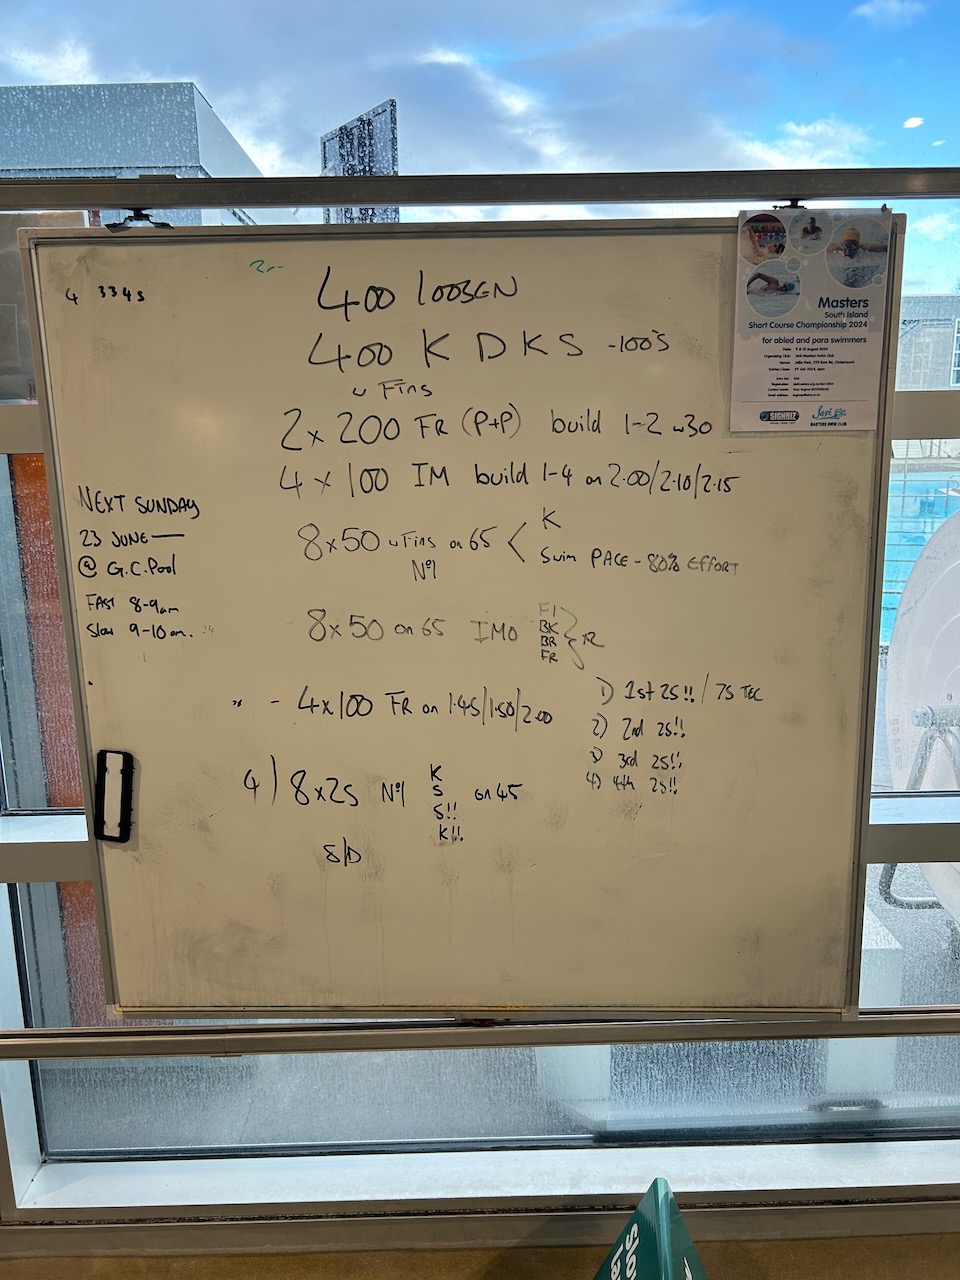 4 334s
400 LOOSEN
400 K D K S -100's
w Fins
2x 200 FR (P+P) build 1-2 w30
4 x 100 IM build 1-4 on 2.00/2.10/2.15
8x50 w Fins on 65 < K
Swim PACE - 80% EFFORT
Nº1
8x50 on 65 IMO
FI
BK
BR
FR
- 4x100 FR on 1.45/1.50/2.00
1) 1st 25!! / 75 TEC
2) 2nd 25!!
3) 3rd 25!!
4) 4th 25!!
4) 8x25 Nº1 K
S
S!!
K!!
on 45
S/D
NEXT SUNDAY
23 JUNE
@ G.C. Pool
FAST 8-9am
Slow 9-10am.
Masters
South Island
Short Course Championship 2024
for abled and para swimmers
SIGNBIZ
MASTERS SWIM CLUB
Slow